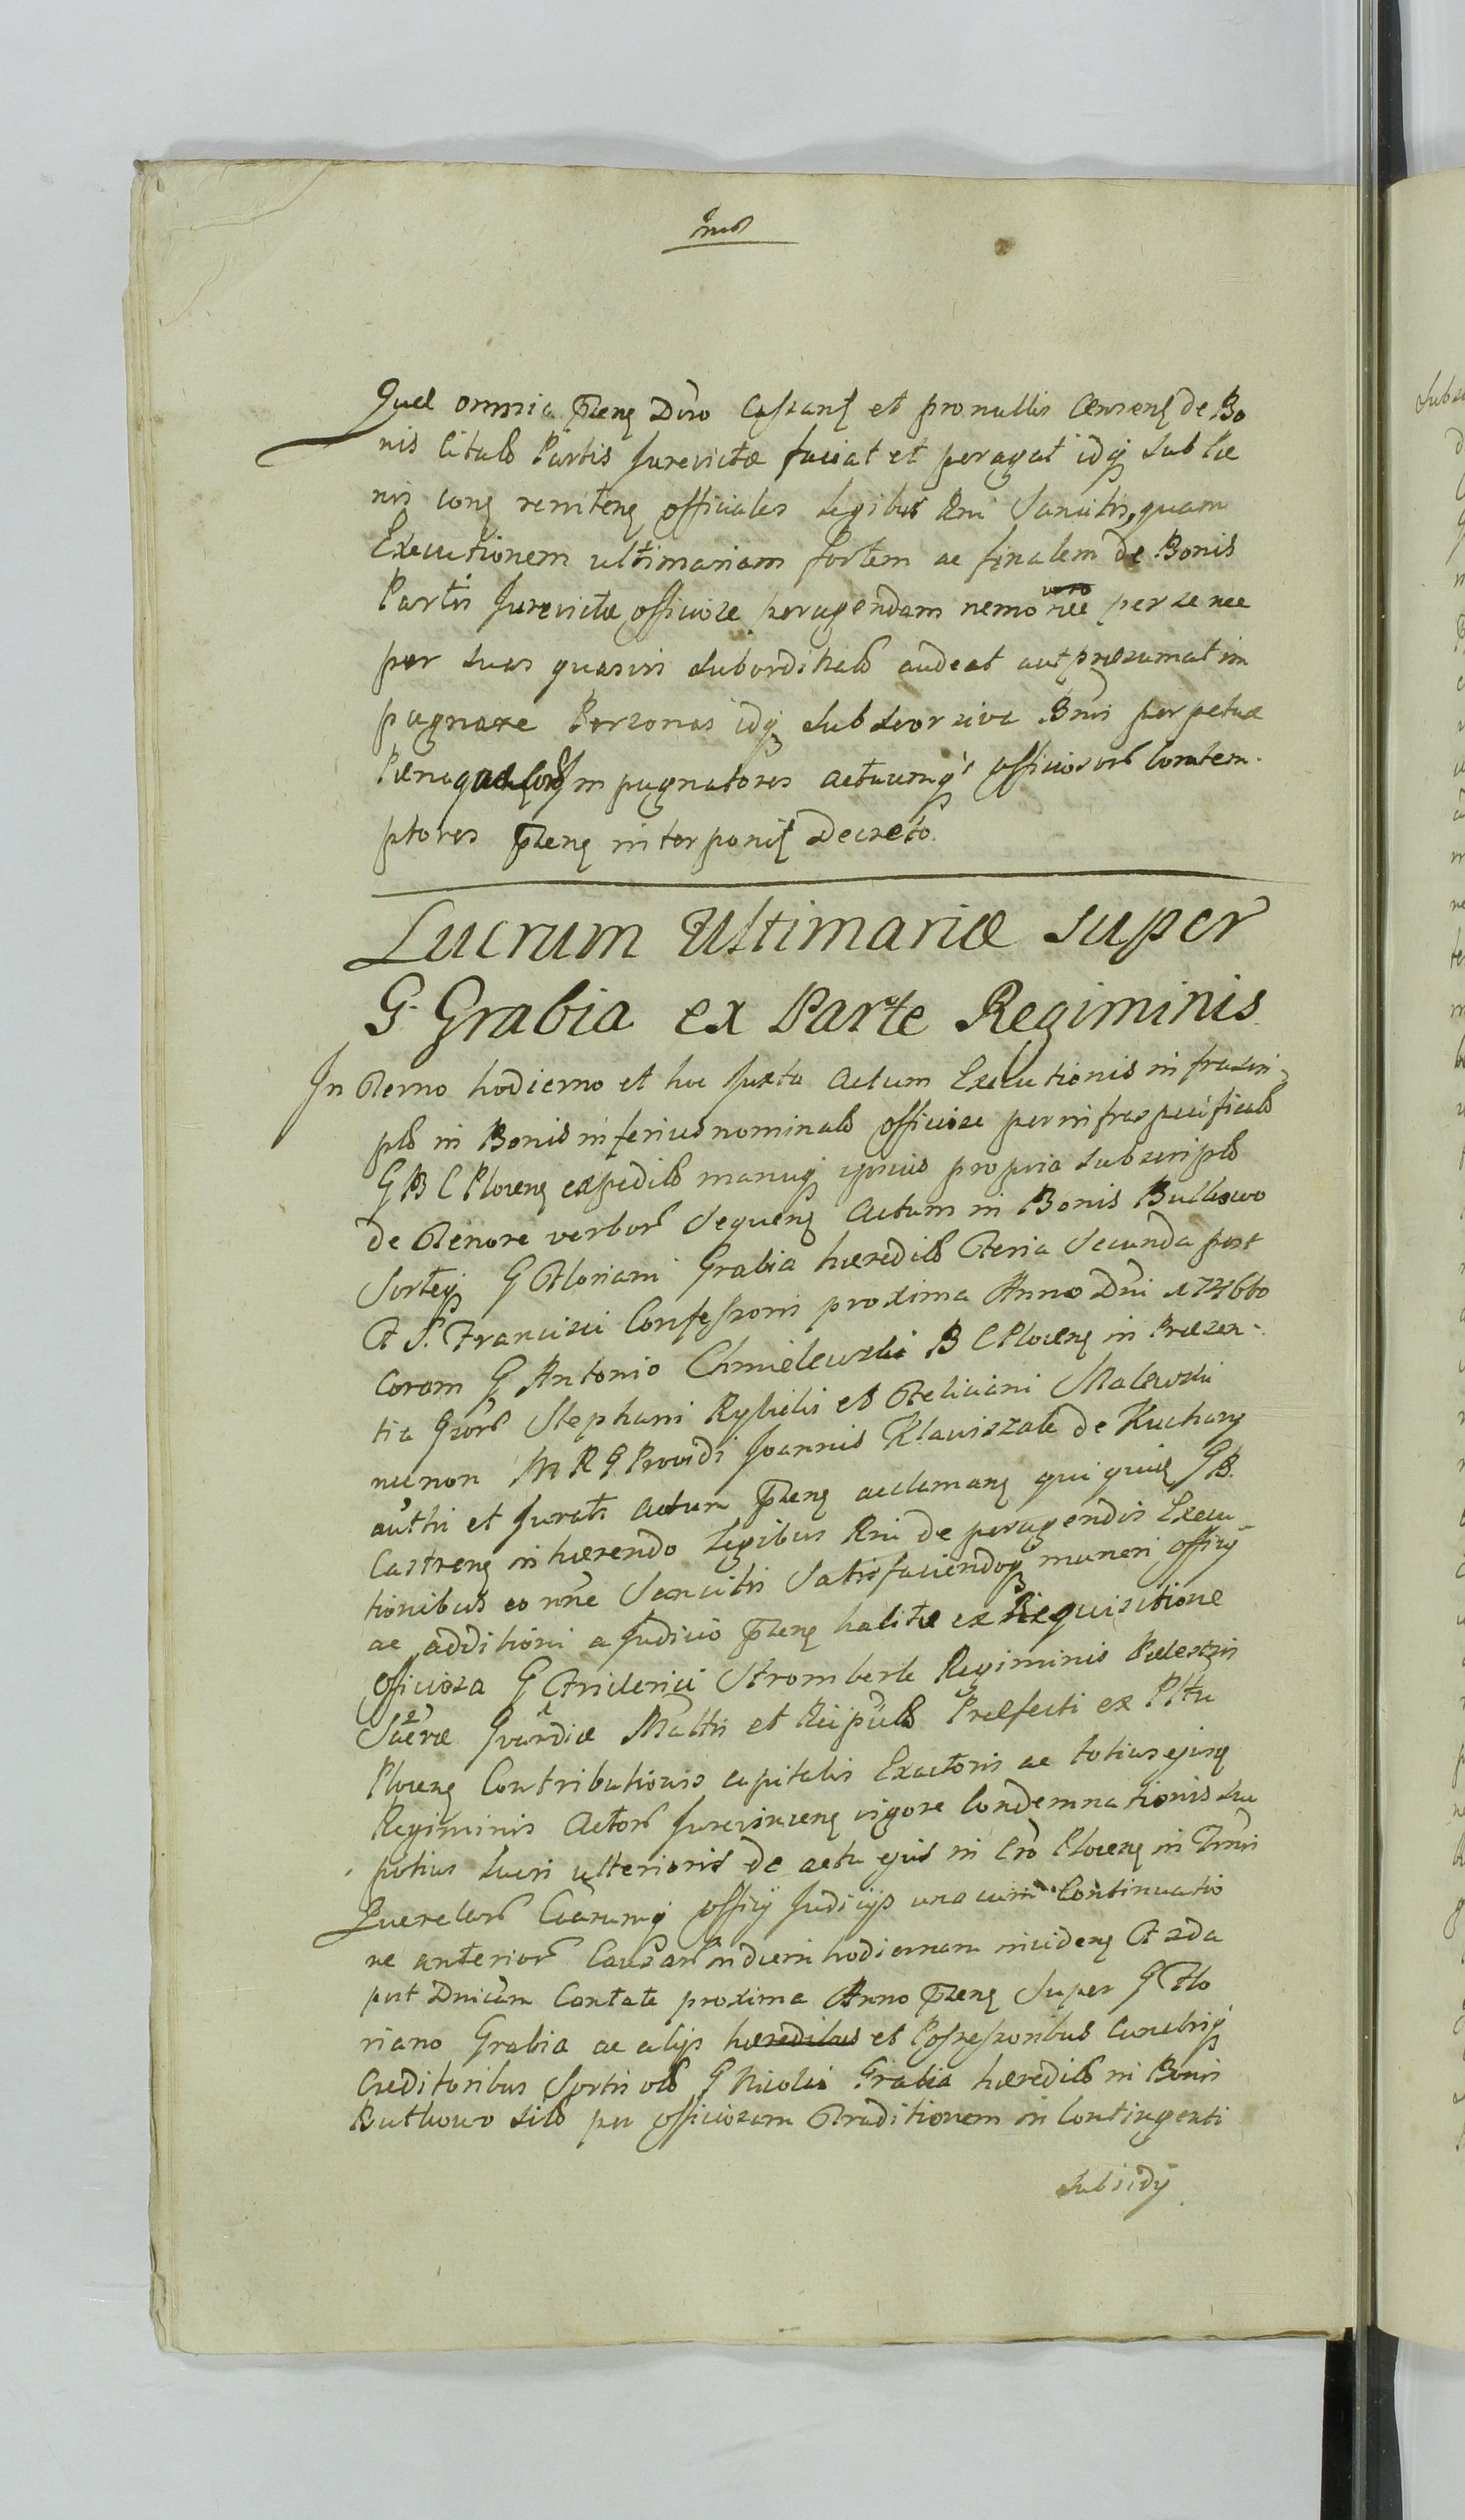 Quæ omnia præns Diro cassans et pro nullis censens de Bo
nis citatæ Partis Jurevictæ faciat et peragat idq sub Pæ
nis cons renitens officiales Legibus Rni Sancitis, quam
Executionem ultimariam fortem ac finalem de Bonis
Partis Jurevictæ officiose peragendam nemo vero nec per se nec
per suas quasvis subordinatas audeat aut præsumat im
pugnare Personas idq sub sevorsivæ Bnis perpetuæ
Pæna Impugnatores actuumq officiosorum Contem-
ptores præns interponit Decreto.
Lucrum Ultimariæ super
G. Grabia ex Parte Regiminis
In Termo hodierno et hoc Juxta Actum Executionis infrascri-
pto in Bonis inferius nominatis officiose per infraspecificatum
G B C Plocens expedito manuq ipsius propria subscripto
de Tenore verborum Sequens Actum in Bonis Butkowo
Sorteq G Floriani Grabia hæreditis Feria Secunda post
F S. Francisci Confessoris proxima Anno Dni 1746to
Coram G Antonio Chmielewski B C Plocens in Præsen-
tia Grorum Stephani Rybicki et Feliciani Malewski
necnon M R G Providi Joannis Klawiszata de Kuchary
authi et Jurati actum præns acclamans qui quid G B.
Castrens inhærendo Legibus Rni de peragendis Execu
tionibus eo nne Sancitis Satisfaciendoq muneri officij
ac additioni a Judicio præns habitæ ex Requisitione
officiosa G Friderici Stromberk Regiminis Pedestris
Sacræ Gvardiæ Mattis et Reipubl Præfecti ex Pltu
Plocens Contributionis capitalis Exactoris ac totius ejusq
Regiminis Actorum Jurevincens vigore Condemnationis seu
potius lucri ulterioris de actu ejus in Cro Plocens in Trnis
Querelarum Ctiarumq officij Judicijs una cum Continuatio
ne anteriorum Causarum in diem hodiernam incidens F 2da
post Dnicam Cantate proxima Anno præns Super G Flo
riano Grabia ac alijs hæredibus et Possessoribus cunctisq
Creditoribus Sortis olim G Nicolai Grabia hæreditis in Bonis
Butkowo sitæ per officiosam Traditionem in Contingenti
subsidij